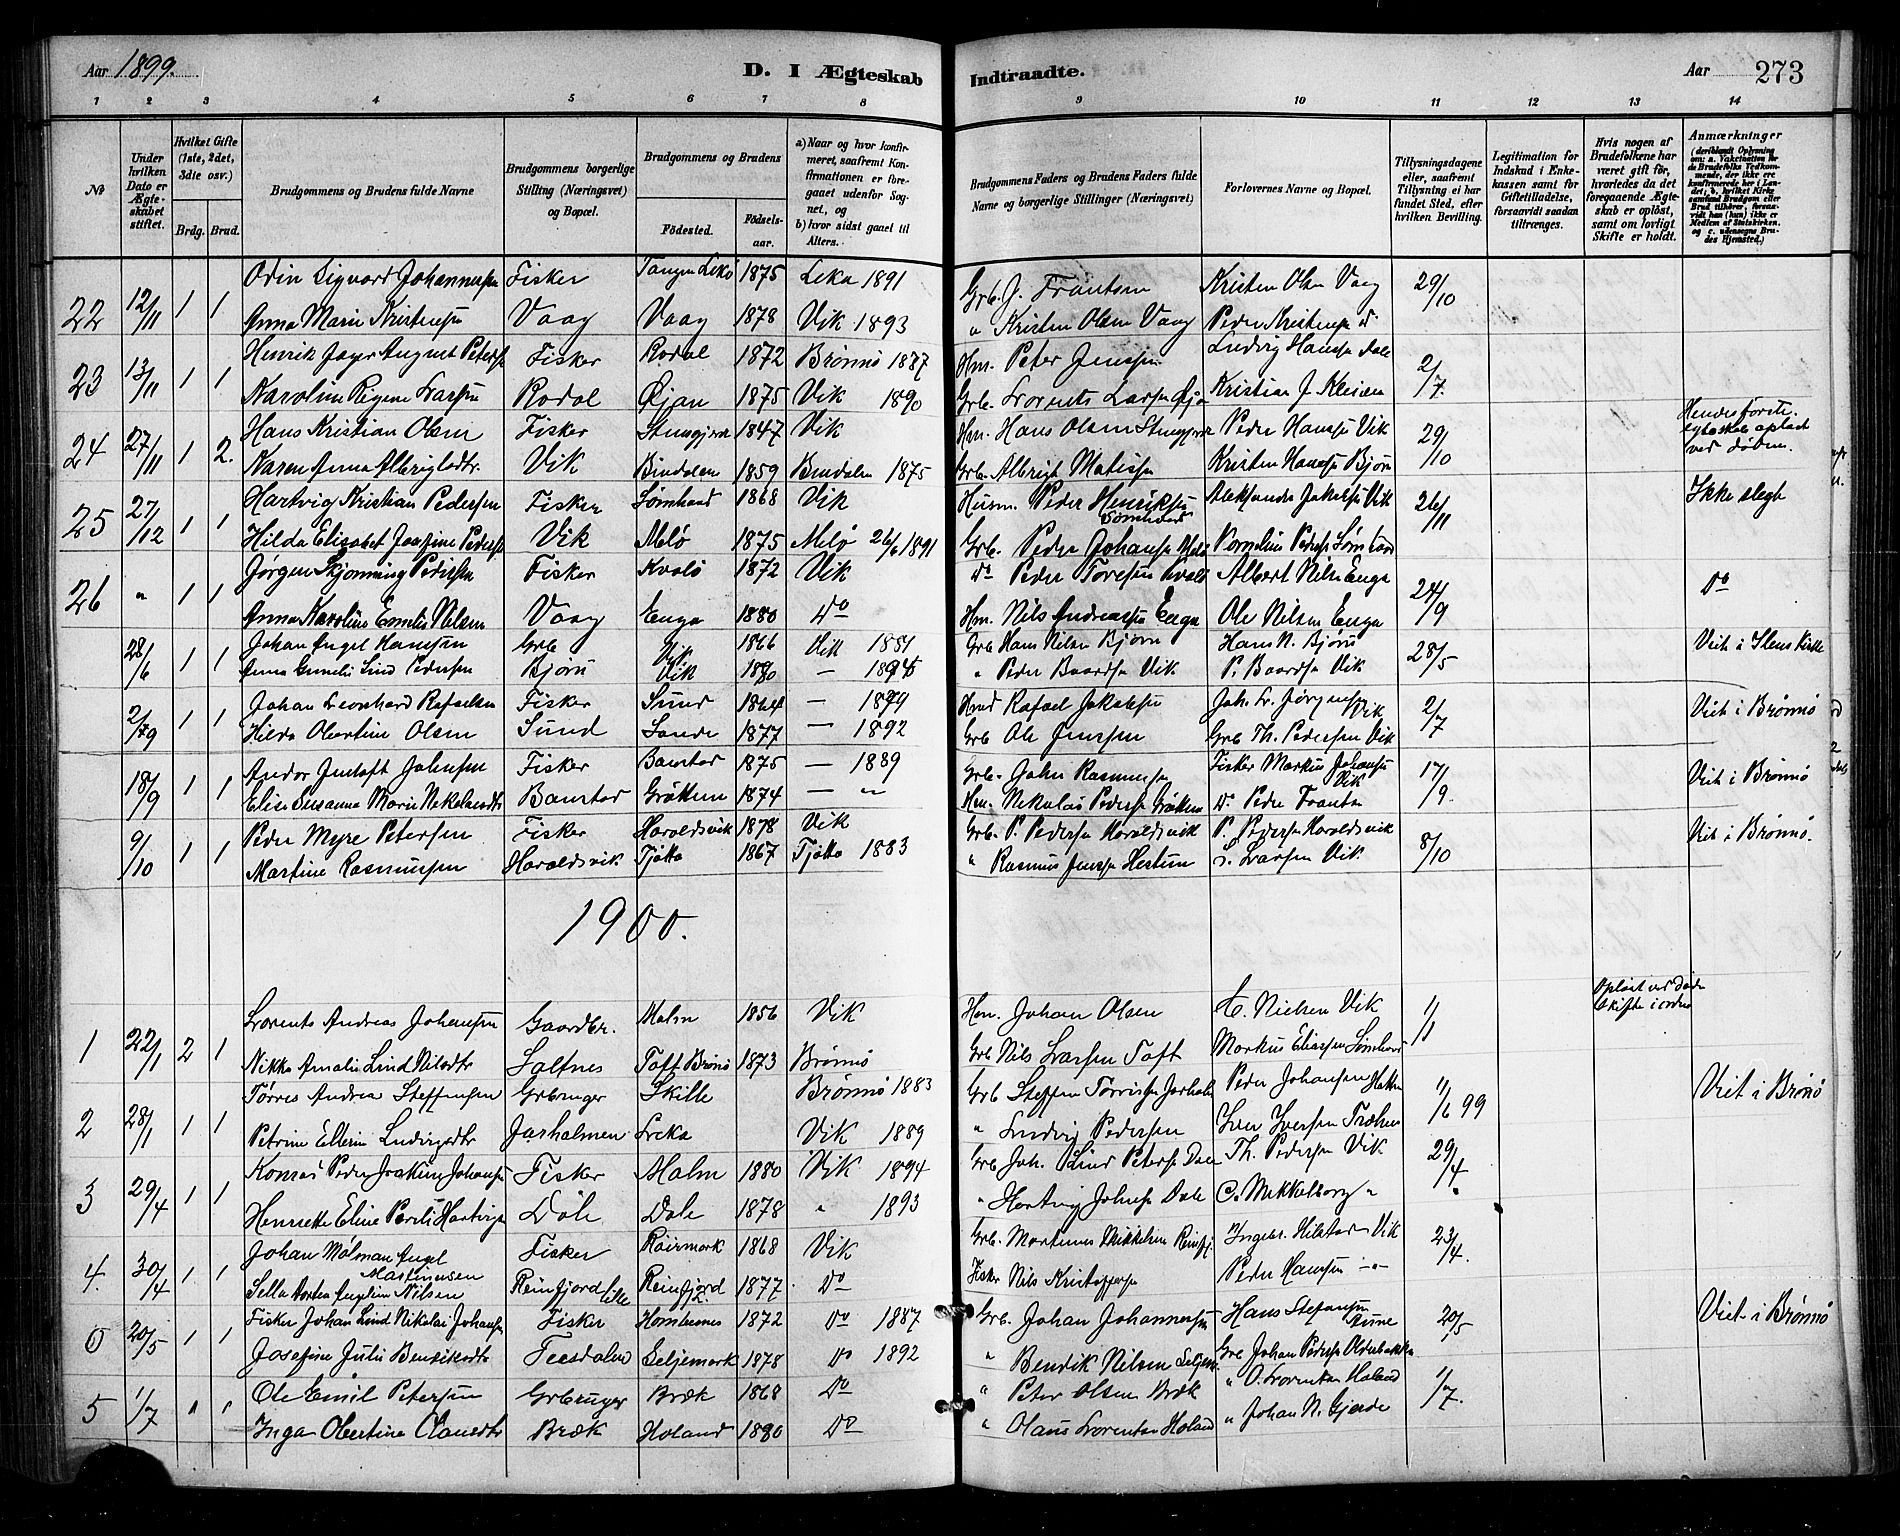 Aar 1899.
D. I Ægteskab Indtraadte.
Aar 273
1 2 3 4 5 6 7 8 9 10 11 12 13 14
No
Under hvilken Dato er Ægteskabet stiftet.
Hvilket Gifte (1ste, 2det, 3die osv.)
Brdg. Brud.
Brudgommens og Brudens fulde Navne
Brudgommens borgerlige Stilling (Næringsvei) og Bopæl.
Brudgommens og Brudens
Fødested. Fødselsaar.
a) Naar og hvor konfirmeret, saafremt Konfirmationen er foregaaet udenfor Sognet, og
b) hvor sidst gaaet til Alters.
Brudgommens Faders og Brudens Faders fulde Navne og borgerlige Stillinger (Næringsvei)
Forlovernes Navne og Bopæl.
Tillysningsdagene eller, saafremt Tillysning ei har fundet Sted, efter hvilken Bevilling.
Legitimation for Indskud i Enkekassen samt for Giftetilladelse, forsaavidt saadan tiltrænges.
Hvis nogen af Brudefolkene har været gift før, hvorledes da det foregaaende Ægteskab er opløst, samt om lovligt Skifte er holdt.
Anmærkninger
22 12/11 1 1 Odin Sigvard Johannessen Fisker Tangen Lekø 1875 Leka 1891 Grb. J. Frantsen Kristen Olsen Vaag 29/10
Anna Marie Kristensen Vaag Vaag 1878 Vik 1893 " Kristen Olsen Vaag Peder Kristensen do
23 13/11 1 1 Henrik August Peters Fisker Rodal 1872 Brønnø 1887 Hm. Peter Jenssen Ludvig Hansen Dale 2/7
Karoline Regine Larsen Rodal Øjan 1875 Vik 1890 Grb. Lorents Larsen Øjan Kristian J.
24 27/11 1 2. Hans Kristian Olsen Fisker 1847 Vik Hm. Hans Olsen Peder Hansen Vik 29/10 Hendes første ægteskab opløst ved Døden.
Karen Anna Albrigtdtr Vik Bindalen 1859 Bindalen 1875 Grb. Albrigt Matissen Kristen Hansen Bjørn
25 27/12 1 1 Hartvig Kristian Pedersen Fisker Sømhoved 1868 Vik Husm. Peder Henriksen Sømhoved Aleksander Jakobsen Vik 26/11 Ikke slegt
Hilda Elisabet Josefine Peders Vik Melø 1875 Melø 26/6 1891 Grb. Peder Johansen Melø Kornelius Peders Sømhoved
26 " 1 1 Jørgen Skjønning Pedersen Fisker Kvalø 1872 Vik Do Peder Toresen Kvalø Albert Nilsen Enga 24/9 Do
Anna Karoline Emelie Nilsen Vaag Enga 1880 Do Hm. Nils Andreassen Enga Ole Nilsen Enga
28/6 1 1 Johan Angel Hansen Grb Vik 1866 Vik 1881 Grb Hans Nilsen Bjørn Hans N. Bjørn 28/5
Anna Lind Pedersen Bjørn Vik 1880 — " Peder Baardsen Vik P. Baardsen Vik
2/79 1 1 Johan Leonhard Rafaelsen Fisker Sund 1864 — 1879 Rafael Jakobsen Joh. Jørgensen Vik 2/7 Viet i Brønnø
Hilda Obertine Olsen Sund Sande 1877 — 1892 Grb Ole Jenssen Grb Th. Pedersen Vik
18/9 1 1 Andor Johnsen Fisker Baustad 1875 — 1889 Grb. John Rasmussen Fisker Markus Johansen Vik 17/9. Viet i Brønnø
Elise Susanna Marie Nikolaidtr Baustad Grøttem 1874 — " Hm. Nikolai Peders Grøttem Do Peder Frantsen
9/10 1 1 Peder Myre Petersen Fisker Haroldsvik 1878 Vik Grb. P. Pedersen Haroldsvik P. Pedersen Haroldsvik 8/10 Viet i Brønnø.
Martine Rasmussen Haroldsvik Tjøtta 1867 Tjøtta 1883 " Rasmus Jenssen Larsen Vik.
1900.
1 22/1 2 1 Lorents Andreas Johansen Gaardbr. Malm 1856 Vik Hm. Johan Olsen Nielsen Vik 1/1 Opløst ved Døden Skifte i orden
Nikka Amalie Lind Nilsdtr Saltnes Toft Brønø 1873 Brønnø Grb Nils Larsen Toft Markus Eliassen Sømhoved
2 28/1 1 1 Tørres Andrea Steffensen Grbruger Skille Brønnø 1883 Grb Steffen Tørrissen Jarholm Peder Johansen 1/6 99 Viet i Brønø
Petrine Ellerine Ludvigsdtr Jarholmen Leka Vik 1889 " Ludvig Pedersen Iver Iversen
3 29/4 1 1 Konrad Peder Joakim Johansen Fisker Malm 1880 Vik 1894 Grb Joh. Lind Peters Dale Th. Pedersen Vik 29/4
Henriette Eline Hartvigs Døle Dale 1878 " 1893 " Hartvig Johnsen Dale C. Mikkelborg "
4. 30/4 1 1 Johan Mølman Angel Martinussen Fisker Røirmark 1868 Vik Grb. Martinus Mikkelsen Vik 23/4.
Sella Nilsen Reinfjord lille Reinfjord 1877 Do Fisker Nils Kristoffersen Peder Hansen —"—
20/5 1 1 Fisker Johan Lind Nikolai Johansen Fisker Hombornes 1872 Do 1887 Grb. Johan Johannessen Hans Stefansen 20/5 Viet i Brønnø
Josefine Julie Bendiksdtr Terdalen Seljemark 1878 Do 1892 " Bendik Nilsen Grb Johan Peders Olderbakken
5 1/7 " " Ole Emil Petersen Grbruger Bræk 1868 Do " Peter Olsen Bræk " O. Lorentsen Holand 1/7.
Inga Obertine Olausdtr Bræk Holand 1880 Do " Olaus Lorentsen Holand " Johan N. Gjerde